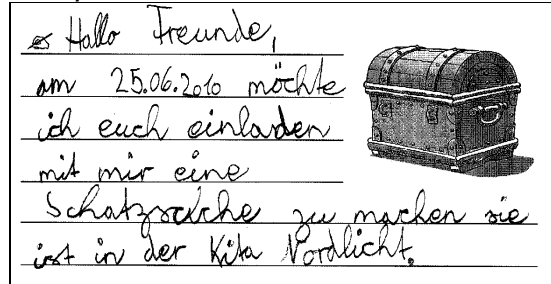 Hallo Freunde,
am 25.06.2010 möchte
ich euch einladen
mit mir eine
Schatzsuche zu machen sie
ist in der Kita Nordlicht.